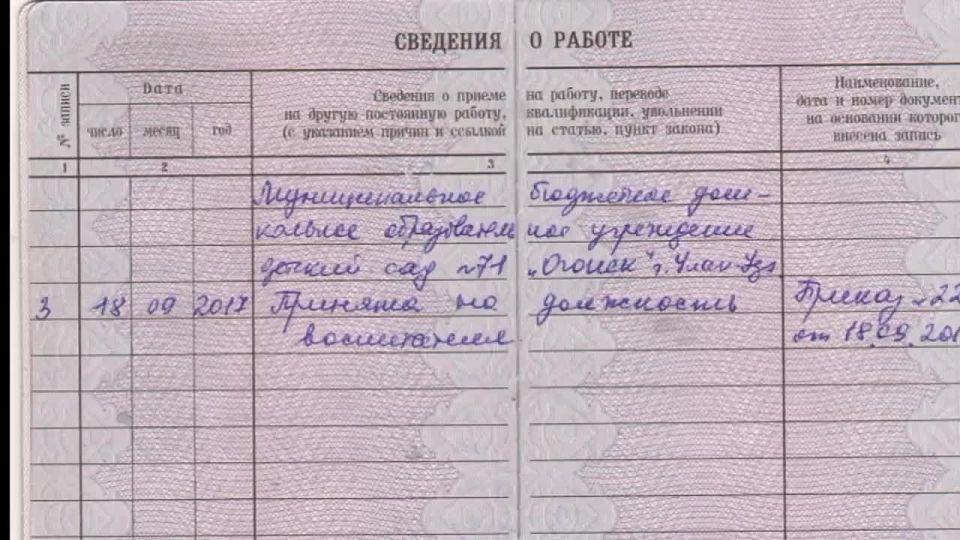 СВЕДЕНИЯ О РАБОТЕ
№ записи
Дата
число месяц год
Сведения о приеме на работу, переводе
на другую постоянную работу, квалификации, увольнении
(с указанием причин и ссылкой на статью, пункт закона)
Наименование,
дата и номер документ
на основании которог
внесена запись
1 2 3 4
Муниципальное бюджетное дош-
кольное образователь ное учреждение
детский сад №71 "Огонек" г. Улан-Удэ
3 18 09 2017 Принята на должность Приказ №22
воспитателя от 18.09.201